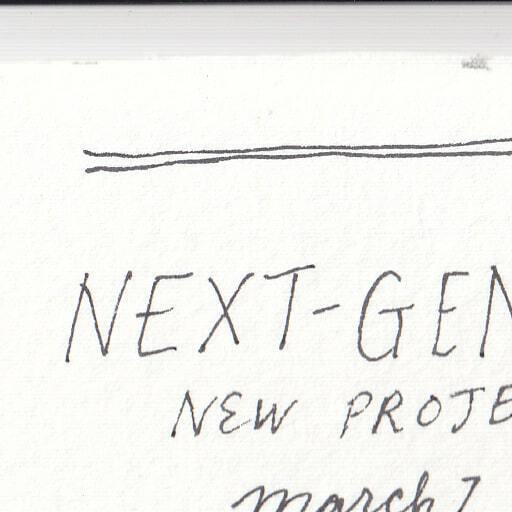 NEXT-GEN
NEW PROJE
march 7